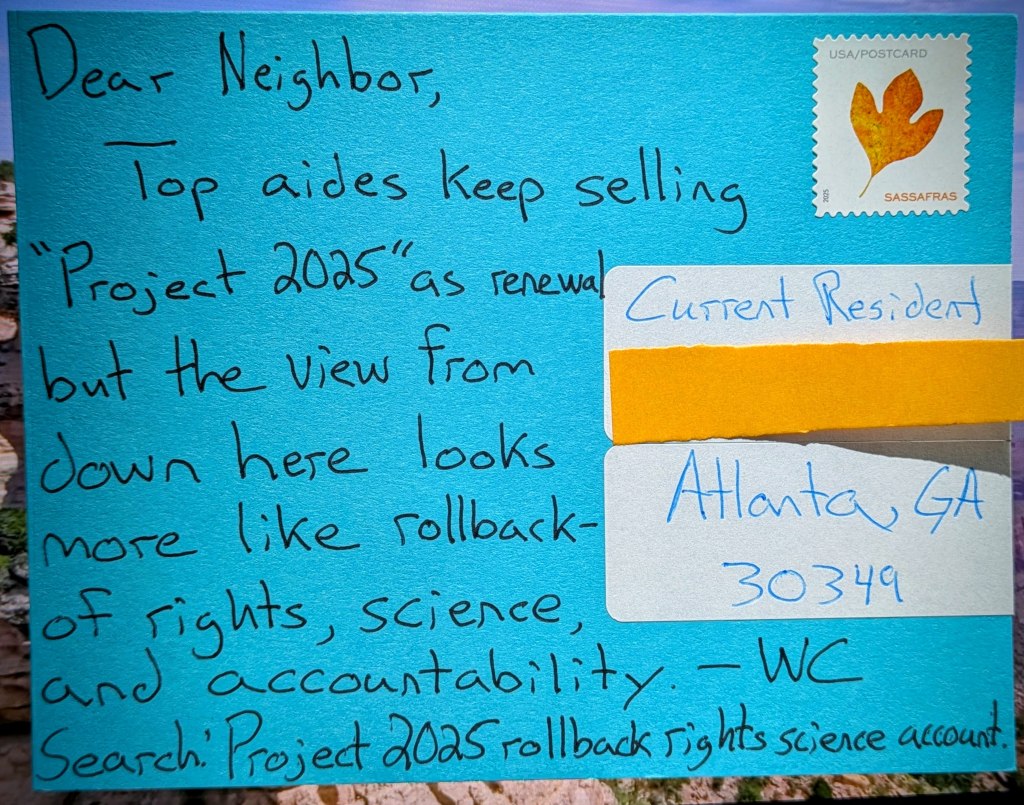 Dear Neighbor,
Top aides keep selling
"Project 2025" as renewal
but the view from
down here looks
more like rollback-
of rights, science,
and accountability. - WC
Search: Project 2025 rollback rights science account.
USA/POSTCARD
2025
SASSAFRAS
Current Resident
Atlanta, GA
30349